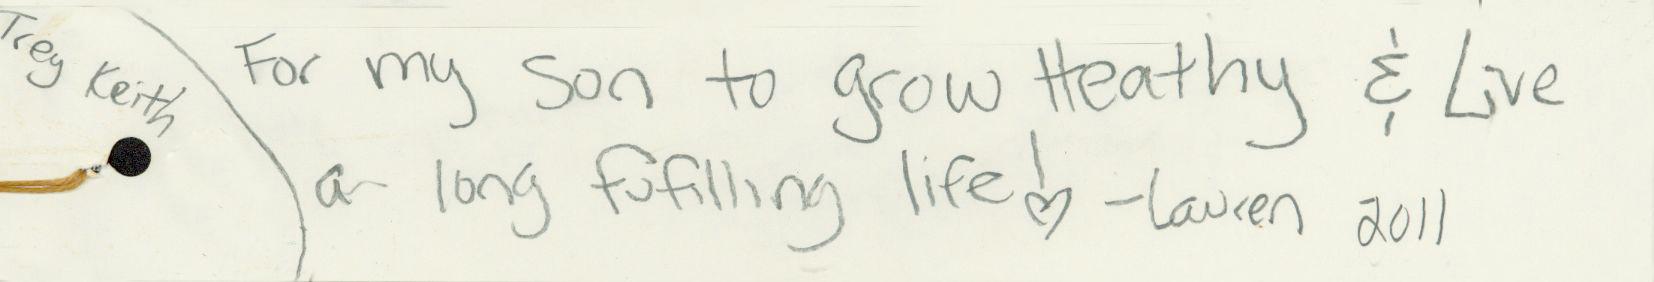 Trey Keith
For my son to grow Heathy & Live
a long fufilling life! ♡ -Lauren 2011